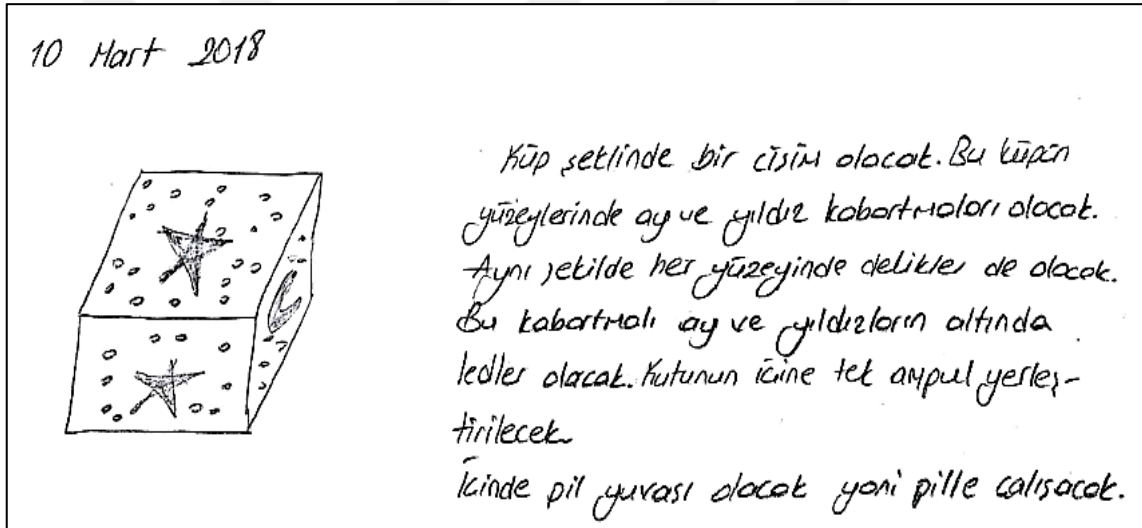 10 Mart 2018
Küp şeklinde bir cisim olacak. Bu küpün
yüzeylerinde ay ve yıldız kabartmaları olacak.
Aynı şekilde her yüzeyinde delikler de olacak.
Bu kabartmalı ay ve yıldızların altında
ledler olacak. Kutunun içine tek ampul yerleş-
tirilecek
İçinde pil yuvası olacak yani pille çalışacak.